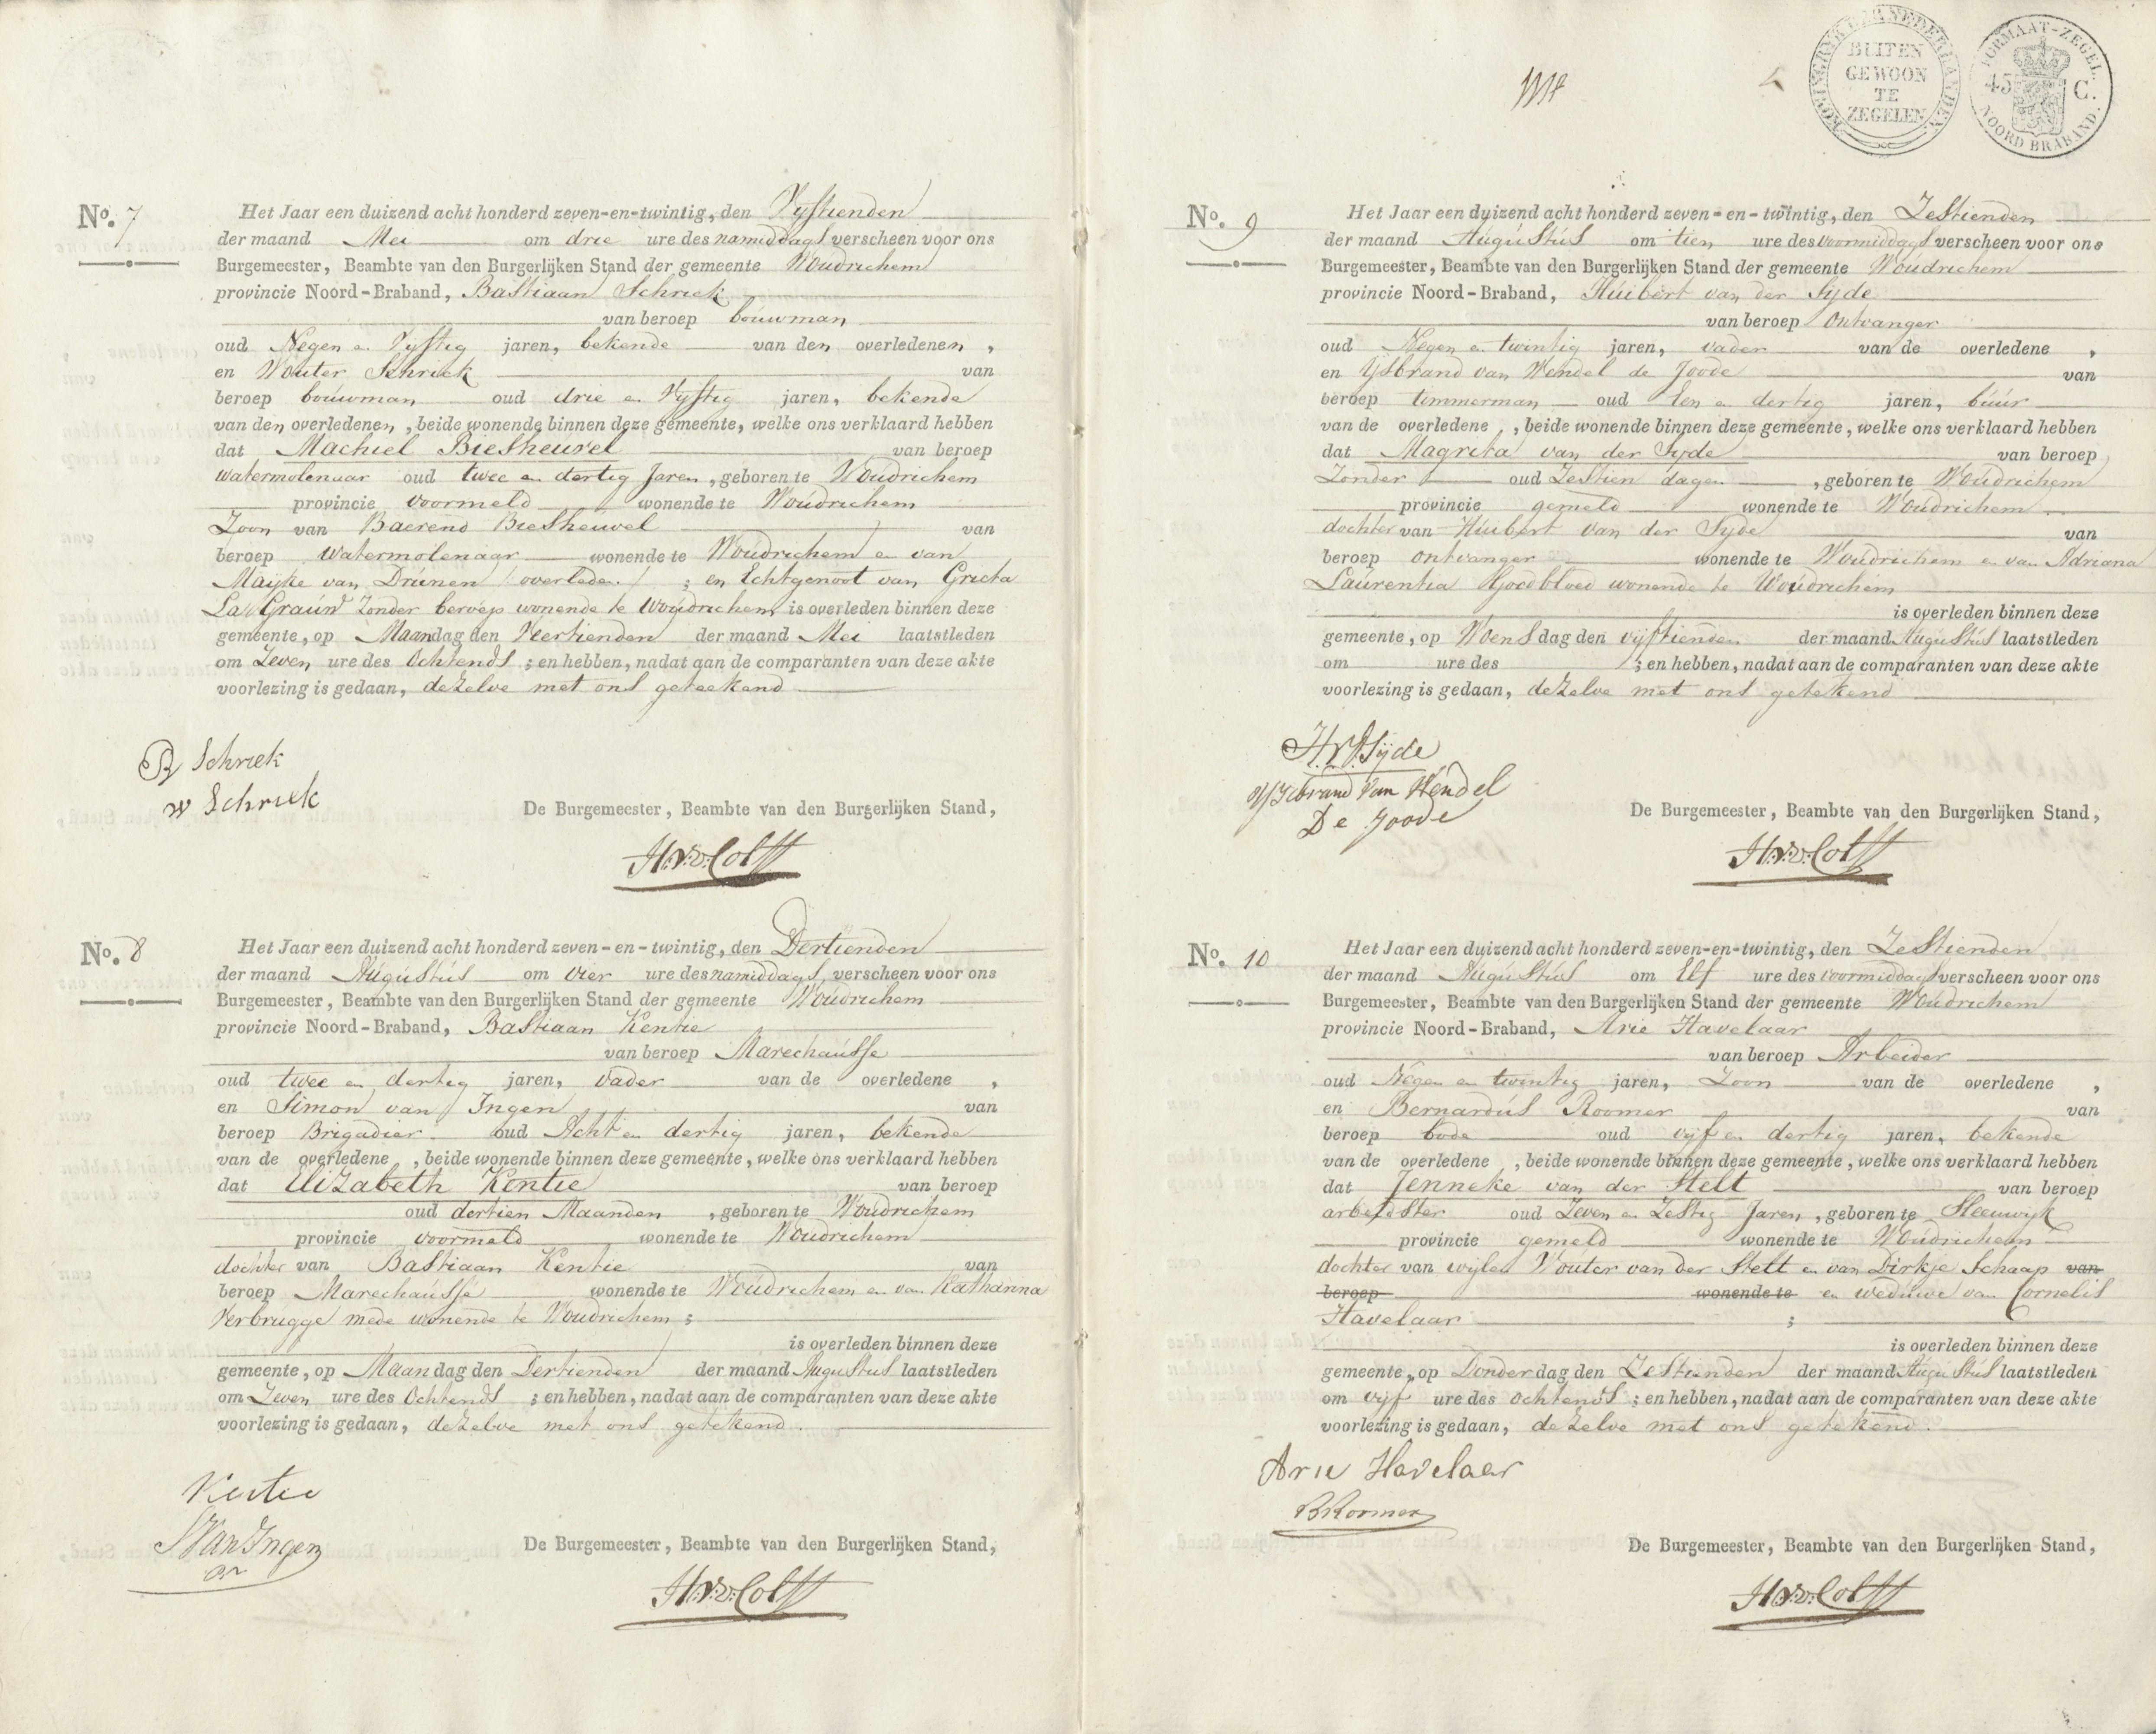 No. 7
Het Jaar een duizend acht honderd zeven-en-twintig, den Vyftienden
der maand Mei om drie ure des namiddags verscheen voor ons
Burgemeester, Beambte van den Burgerlijken Stand der gemeente Woudrichem
provincie Noord-Braband, Bastiaan Schriek
van beroep bouwman
oud Negen en Vyftig jaren, bekende van den overledenen,
en Wouter Schriek van
beroep bouwman oud drie en Vyftig jaren, bekende
van den overledenen, beide wonende binnen deze gemeente, welke ons verklaard hebben
dat Machiel Biesheuvel van beroep
watermolenaar oud twee en dertig Jaren, geboren te Woudrichem
provincie voormeld wonende te Woudrichem
Zoon van Baerend Biesheuvel van
beroep watermolenaar wonende te Woudrichem en van
Maijke van Drunen (overleden); en Echtgenoot van Grieta
La Graund Zonder beroep wonende te Woudrichem is overleden binnen deze
gemeente, op Maandag den Veertienden der maand Mei laatstleden
om Zeven ure des Ochtends; en hebben, nadat aan de comparanten van deze akte
voorlezing is gedaan, dezelve met ons geteekend
B Schriek
W Schriek
De Burgemeester, Beambte van den Burgerlijken Stand,
H.v.d. Colff
No. 8
Het Jaar een duizend acht honderd zeven-en-twintig, den Dertienden
der maand Augustus om vier ure des namiddags verscheen voor ons
Burgemeester, Beambte van den Burgerlijken Stand der gemeente Woudrichem
provincie Noord-Braband, Bastiaan Kentie
van beroep Marechausse
oud twee en dertig jaren, vader van de overledene,
en Simon van Ingen van
beroep Brigadier oud Acht en dertig jaren, bekende
van de overledene, beide wonende binnen deze gemeente, welke ons verklaard hebben
dat Elizabeth Kentie van beroep
oud dertien Maanden, geboren te Woudrichem
provincie voormeld wonende te Woudrichem
dochter van Bastiaan Kentie van
beroep Marechausse wonende te Woudrichem en van Katharina
Verbrugge mede wonende te Woudrichem;
is overleden binnen deze
gemeente, op Maandag den Dertienden der maand Augustus laatstleden
om Zeven ure des Ochtends; en hebben, nadat aan de comparanten van deze akte
voorlezing is gedaan, dezelve met ons getekend.
Kentie
S Van Ingen
De Burgemeester, Beambte van den Burgerlijken Stand,
H.v.d. Colff
KONINGRYK DER NEDERLANDEN
BUITEN
GEWOON
TE
ZEGELEN
FORMAAT-ZEGEL.
45 C.
NOORD BRABAND.
No. 9
Het Jaar een duizend acht honderd zeven-en-twintig, den Zestienden
der maand Augustus om tien ure des voormiddags verscheen voor ons
Burgemeester, Beambte van den Burgerlijken Stand der gemeente Woudrichem
provincie Noord-Braband, Huibert van der Sijde
van beroep Ontvanger
oud Negen en twintig jaren, vader van de overledene,
en IJsbrand van Wendel de Joode van
beroep timmerman oud Een en dertig jaren, buur
van de overledene, beide wonende binnen deze gemeente, welke ons verklaard hebben
dat Magrita van der Sijde van beroep
Zonder oud Zestien dagen, geboren te Woudrichem
provincie gemeld wonende te Woudrichem
dochter van Huibert van der Sijde van
beroep ontvanger wonende te Woudrichem en van Adriana
Laurentia wonende te Woudrichem
is overleden binnen deze
gemeente, op Woensdag den vijftienden der maand Augustus laatstleden
om ure des ; en hebben, nadat aan de comparanten van deze akte
voorlezing is gedaan, dezelve met ons getekend
H.v.d. Sijde
IJsebrand Van Wendel
De Joode
De Burgemeester, Beambte van den Burgerlijken Stand,
H.v.d. Colff
No. 10
Het Jaar een duizend acht honderd zeven-en-twintig, den Zestienden
der maand Augustus om Elf ure des voormiddags verscheen voor ons
Burgemeester, Beambte van den Burgerlijken Stand der gemeente Woudrichem
provincie Noord-Braband, Arie Havelaar
van beroep Arbeider
oud Negen en twintig jaren, Zoon van de overledene,
en Bernardus Roomer van
beroep bode oud vijf en dertig jaren, bekende
van de overledene, beide wonende binnen deze gemeente, welke ons verklaard hebben
dat Jenneke van der Stelt van beroep
arbeidster oud Zeven en Zestig Jaren, geboren te Sleeuwijk
provincie gemeld wonende te Woudrichem
dochter van wylen Wouter van der Stelt en van Dirkje Schaap van
beroep wonende te en weduwe van Cornelis
Havelaar ;
is overleden binnen deze
gemeente, op Donderdag den Zestienden der maand Augustus laatstleden
om vijf ure des ochtends; en hebben, nadat aan de comparanten van deze akte
voorlezing is gedaan, dezelve met ons getekend.
Arie Havelaar
B Roomer
De Burgemeester, Beambte van den Burgerlijken Stand,
H.v.d. Colff